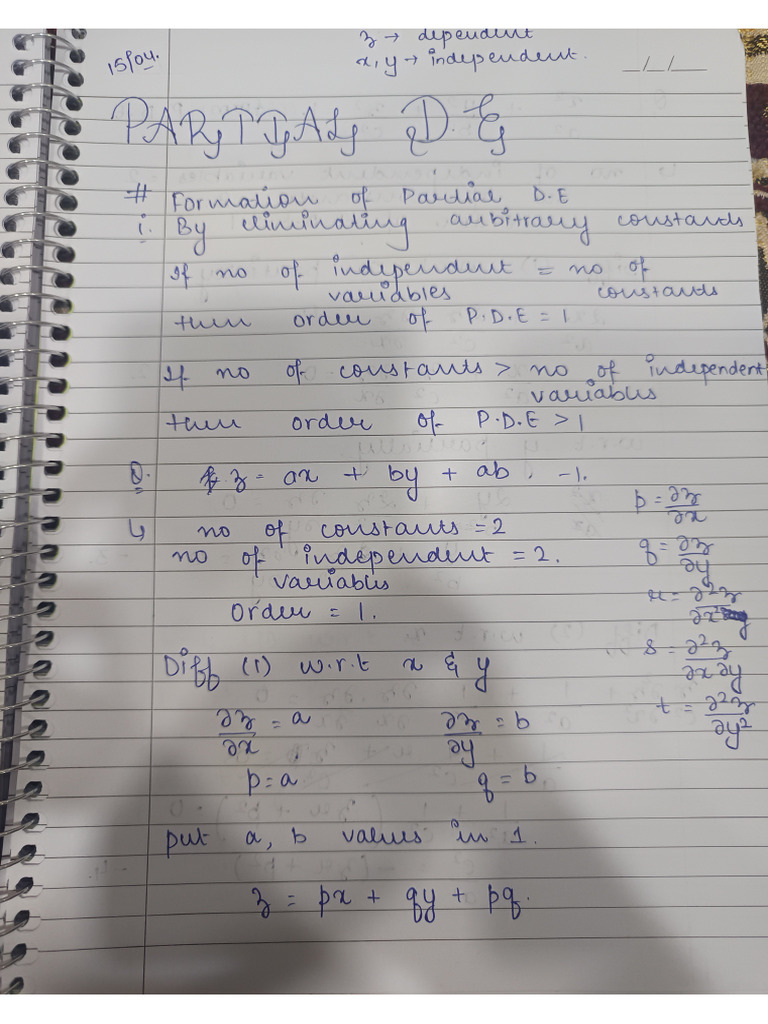 z → dependent
15/04.
x, y → independent.
__/__/__
PARTIAL D.E
# Formation of Partial D.E
i. By eliminating arbitrary constants
If no of independent = no of
variables constants
then order of P.D.E = 1
If no of constants > no of independent
variables
then order of P.D.E > 1
Q. z = ax + by + ab. -1.
p = ∂z/∂x
↳ no of constants = 2
q = ∂z/∂y
no of independent = 2.
variables
r = ∂²z/∂x²
Order = 1.
s = ∂²z/∂x∂y
Diff (1) w.r.t x & y
t = ∂²z/∂y²
∂z/∂x = a ∂z/∂y = b
p = a q = b
put a, b values in 1.
z = px + qy + pq.